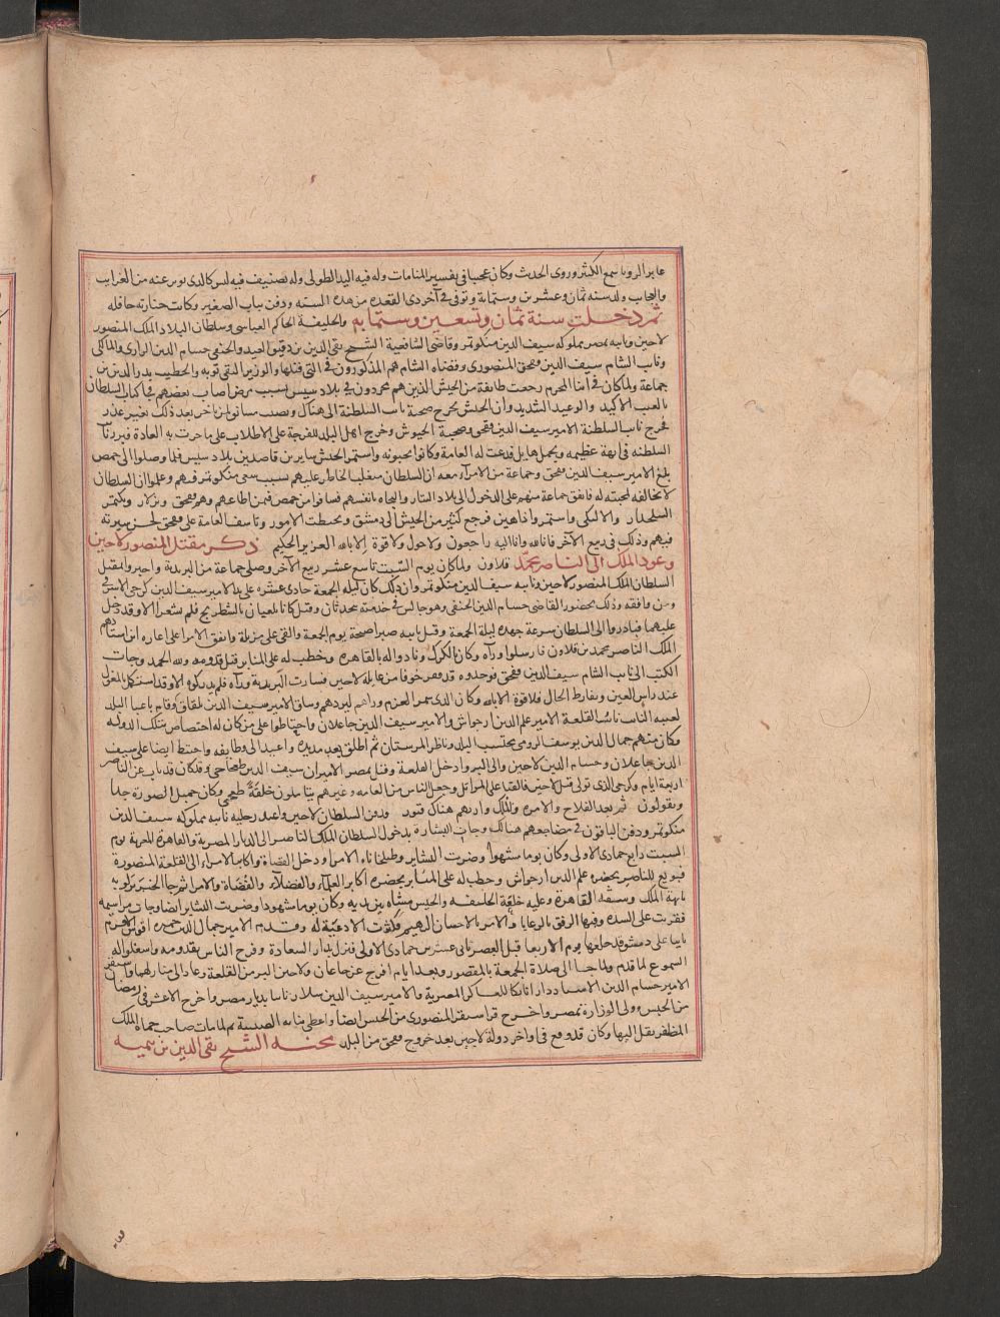 عابر الرويا سمع الكثير وروى الحديث وكان عجبا في تفسير المنامات وله فيه اليد الطولى وله تصنيف فيه ليس كالذي يوثر عنه من الغرايب
والعجايب ولد سنه ثمان وعشرين وستمايه وتوفي في آخر ذي القعده من هذه السنه ودفن بباب الصغير وكانت جنازته حافله
ثم دخلت سنة ثمان وتسعين وستمايه والخليفة الحاكم العباسي وسلطان البلاد الملك المنصور
لاجين ونايبه بمصر مملوكه سيف الدين منكوتمر وقاضي الشافعية الشيخ تقي الدين بن دقيق العيد والحنفي حسام الدين الرازي والمالكي
ونايب الشام سيف الدين قبجق المنصوري وقضاه الشام هم المذكورون في التي قبلها والوزير التقي توبه والخطيب بدر الدين بن
جماعة ولما كان في اثنا المحرم رجعت طايفة من الجيش الذين هم مجردون في بلاد سيس بسبب مرض اصاب بعضهم فجا كتاب السلطان
بالعتب الاكيد والوعيد الشديد وان الجيش يخرج صحبة نايب السلطنة الى هناك ونصب مشانق لمن تاخر بعد ذلك بغير عذر
فخرج نايب السلطنة الامير سيف الدين قبجق وصحبة الجيوش وخرج اهل البلد للفرجة على الاطلاب على ما جرت به العادة فبرز نايب
السلطنه في ابهة عظيمه وتجمل هايل فدعت له العامة وكانوا يحبونه واستمر الجيش سايرين قاصدين بلاد سيس فلما وصلوا الى حمص
بلغ الامير سيف الدين قبجق وجماعة من الامرآء معه ان السلطان متغلب الخاطر عليهم بسبب سعي منكوتمر فيهم وعلموا ان السلطان
لا يخالفه لمحبته له فاتفق جماعة منهم على الدخول الى بلاد التتار والنجاه بانفسهم فساقوا من حمص فيمن اطاعهم وهم قبجق وبزلار وبكتمر
السلحدار والالبكي واستمروا ذاهبين فرجع كثير من الجيش الى دمشق وتخبطت الامور وتاسف العامة على قبجق لحسن سيرته
فيهم وذلك في ربيع الآخر فانا لله وانا اليه راجعون ولا حول ولا قوة الا بالله العزيز الحكيم ذكر مقتل المنصور لاجين
وعود الملك الى الناصر محمد قلاون ولما كان يوم السبت تاسع عشر ربيع الآخر وصل جماعة من البريدية واخبروا بمقتل
السلطان الملك المنصور لاجين ونايبه سيف الدين منكوتمر وان ذلك كان ليله الجمعة حادي عشره على يد الامير سيف الدين كرجي الاشرفي
ومن وافقه وذلك بحضور القاضي حسام الدين الحنفي وهو جالس في خدمته يتحدثان وقيل كانا يلعبان بالشطرنج فلم يشعرا الا وقد دخل
عليهما فبادروا الى السلطان بسرعة جهده ليلة الجمعة وقتل نايبه صبرا صبيحة يوم الجمعة والقي على مزبلة واتفق الامرا على اعاده ابن استادهم
الملك الناصر محمد بن قلاون فارسلوا ورآه وكان بالكرك ونادوا له بالقاهره وخطب له على المنابر قبل قدومه ولله الحمد وجات
الكتب الى نايب الشام سيف الدين قبجق فوجدوه قد فر خوفا من غايلة لاجين فسارت البريدية ورآه فلم يدركوه الا وقد لحق بالمغول
عند راس العين وتفارط الحال فلا قوة الا بالله وكان الذي شمر العزم وراهم ليردهم وساق الامير سيف الدين بلبان وقام باعبا البلد
لغيبه النايب نايب القلعة الامير علم الدين ارجواش والامير سيف الدين جاعان واحتاطوا على من كان له اختصاص بتلك الدوله
وكان منهم جمال الدين يوسف الرومي محتسب البلد وناظر المرستان ثم اطلق بعد مديده واعيد الى وظايفه واحتيط ايضا على سيف
الدين جاعلان وحسام الدين لاجين والي البر وادخل القلعة وقتل بمصر الاميران سيف الدين طغجي وقد كان قد ناب عن الناصر
اربعة ايام وكرجي الذي تولى قتل لاجين فالقيا على المزابل وجعل الناس من العامه وغيرهم يتاملون خلقة طغجي وكان جميل الصورة جدا
ويقولون ثم بعد الفلاح والامره والملك وارتهم هناك قبور ودفن السلطان لاجين وعند رجليه نايبه مملوكه سيف الدين
منكوتمر ودفن الباقون في مضاجعهم هنالك وجات البشارة بدخول السلطان الملك الناصر الى الديار المصرية والقاهرة المعزية يوم
السبت رابع جمادى الاولى وكان يوما مشهودا وضربت البشاير ودخل القضاة واكابر الامراء الى القلعة المنصورة
فبويع للناصر بحضرة علم الدين ارجواش وخطب له على المنابر بحضره اكابر العلمآء والفضلاء والقضاة والامرا ثم جا الخبر بركوبه
بابهة الملك وشقه القاهرة وعليه خلعة الخليفه والجيش مشاه بين يديه وكان يوما مشهودا وضربت البشاير ايضا وجات مراسيمه
فقريت على السده وفيها الرفق بالرعايا والامر بالاحسان اليهم فكثرت الادعية له وقدم الامير جمال الدين اقوش الافرم
نايبا على دمشق فدخلها يوم الاربعا قبل العصر ثاني عشرين جمادى الاولى فنزل بدار السعادة وفرح الناس بقدومه واشعلوا له
الشموع لما قدم ولما جا الى صلاة الجمعة بالمقصور وبعد ايام افرج عن جاعان ولاجين البر من القلعة وعادا الى منازلهما واستقر
الامير حسام الدين الاستاددار اتابكا للعساكر المصرية والامير سيف الدين سلار نايبا بديار مصر واخرج الاعسر في رمضان
من الحبس وولي الوزارة بمصر واخرج قراسنقر المنصوري من الحبس ايضا واعطي نيابه الصبيبة ثم لما مات صاحب حماه الملك
المظفر نقل اليها وكان قد وقع في اواخر دولة لاجين بعد خروج قبجق من البلد محنه الشيخ تقي الدين بن تيميه